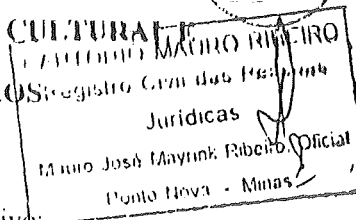 CULTURAL E
CARTÓRIO MAURO RIBEIRO
OS Registro Civil das Pessoas
Jurídicas
Mauro José Mayrink Ribeiro, Oficial
Ponto Nova - Minas